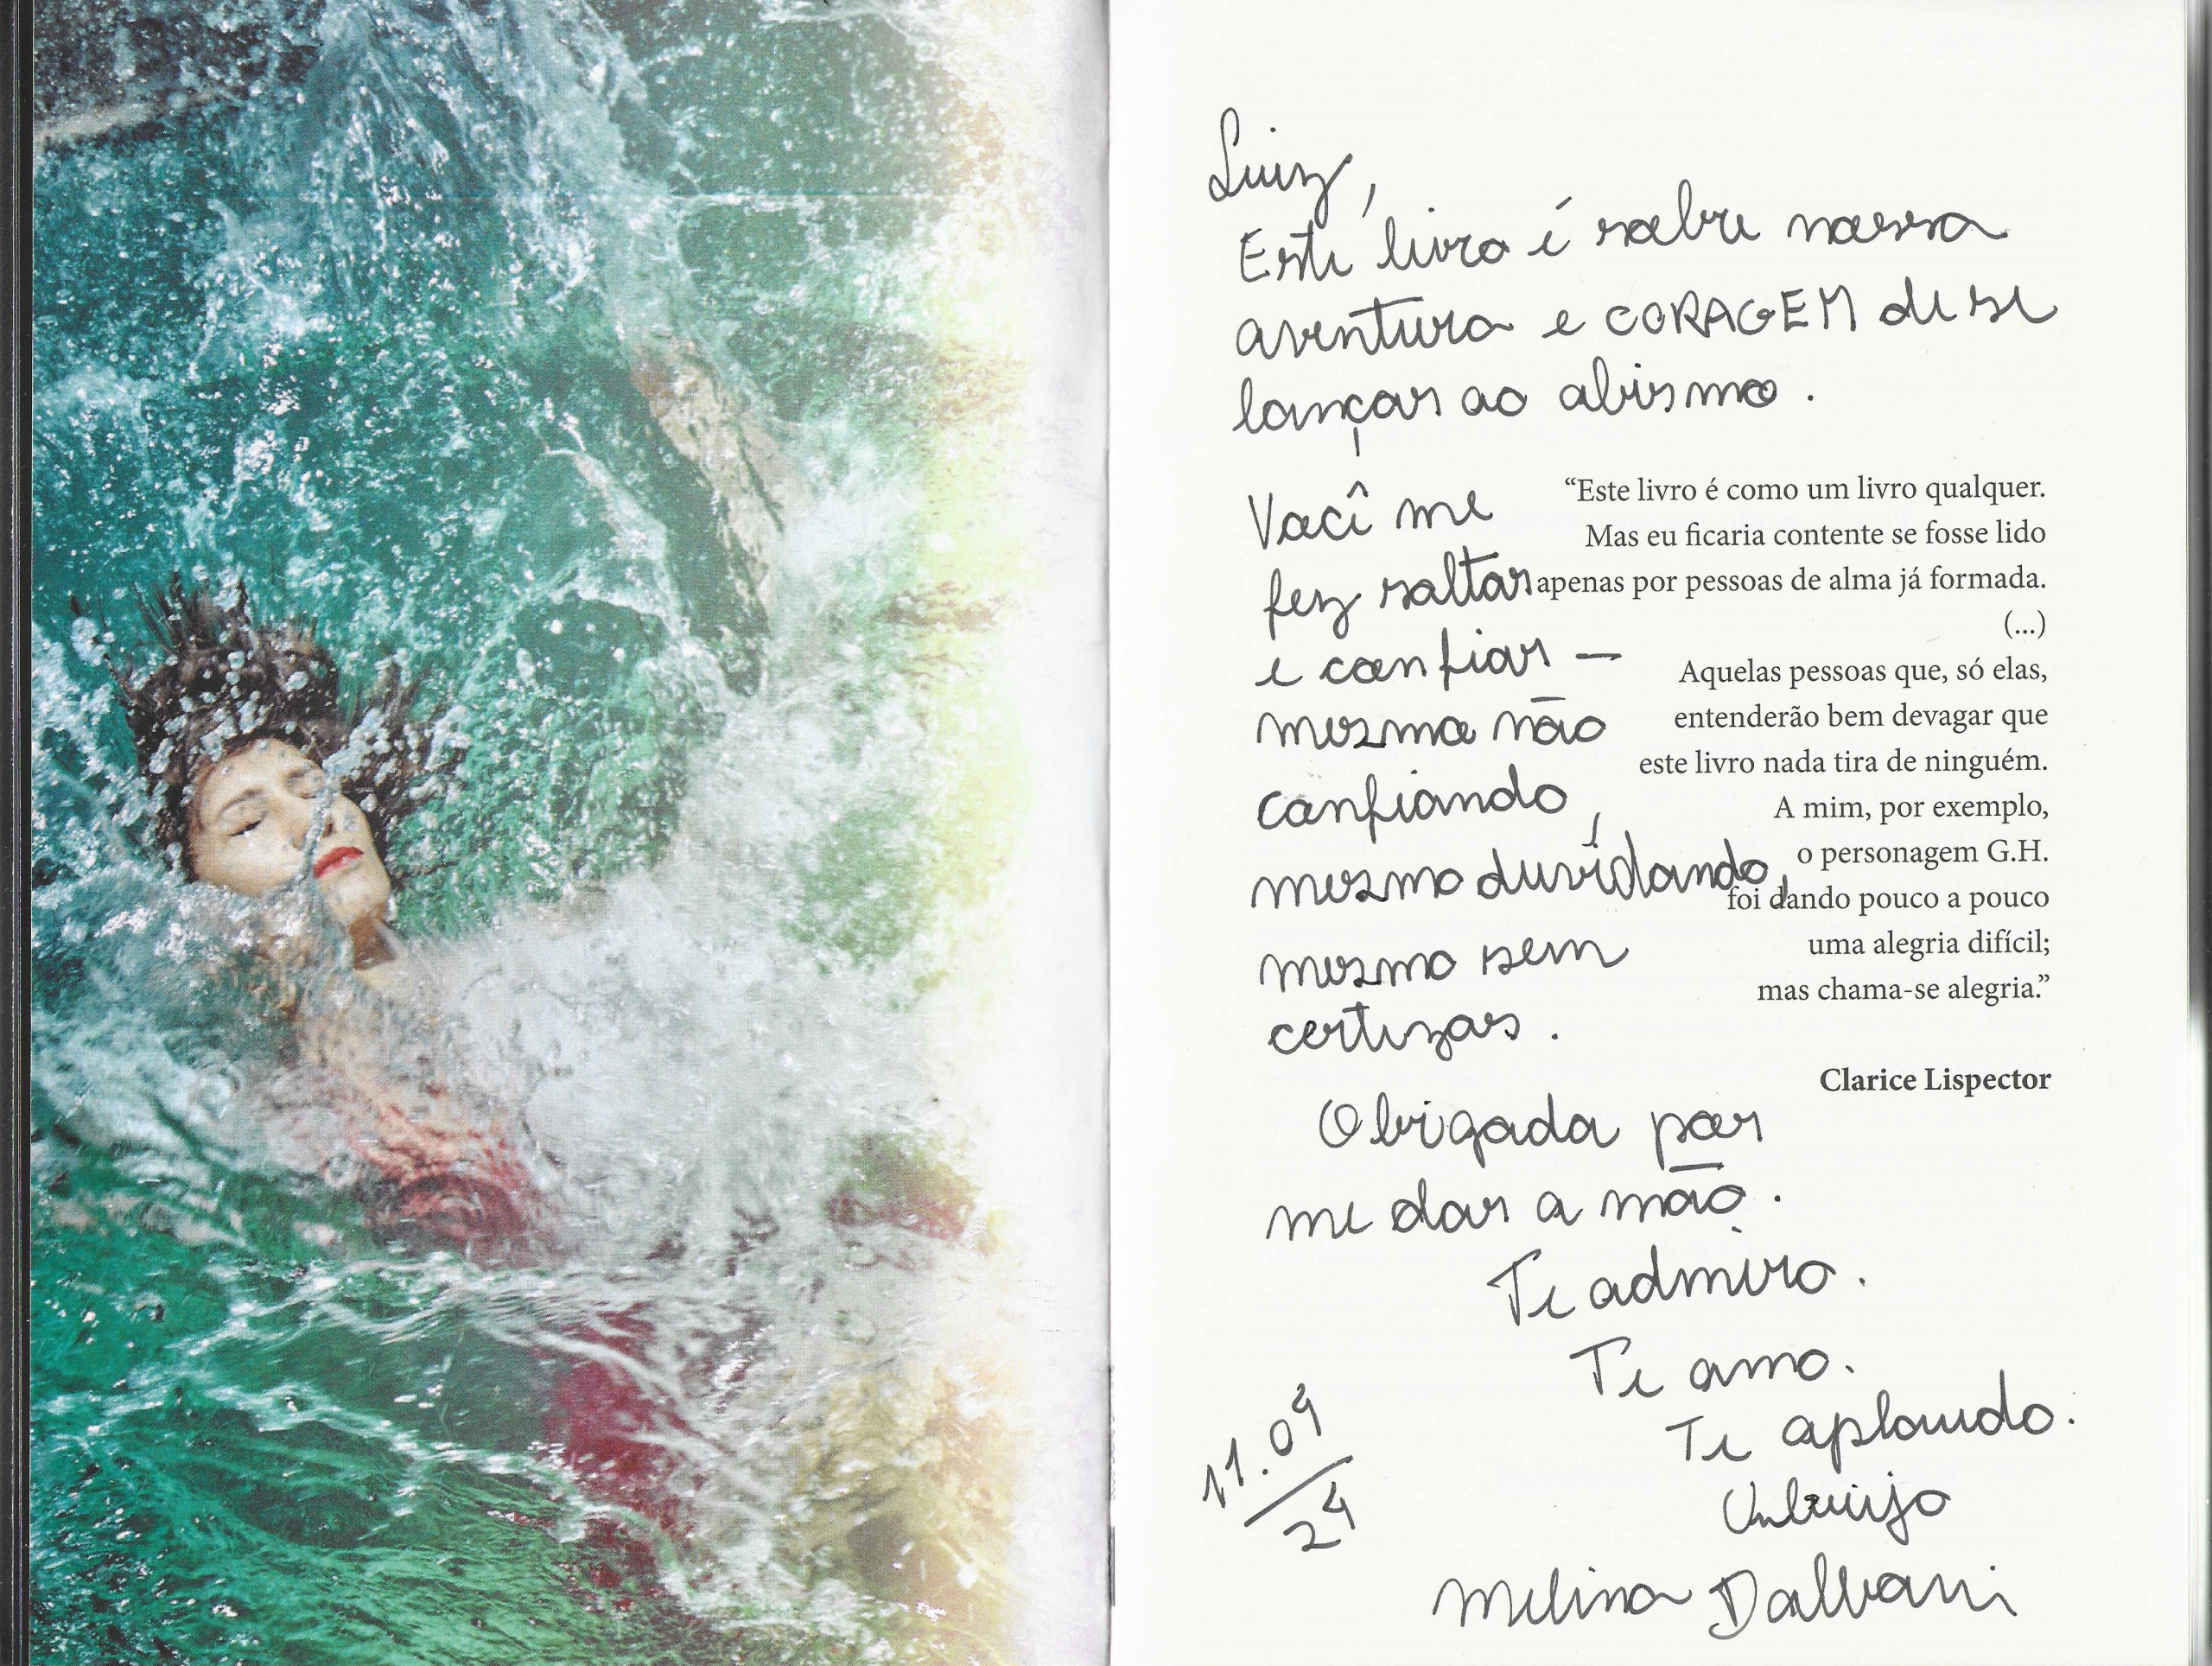 Luiz,
Este livro é sobre nossa
aventura e CORAGEM de se
lançar ao abismo.
Você me
fez saltar
e confiar —
mesmo não
confiando,
mesmo duvidando,
mesmo sem
certezas.
“Este livro é como um livro qualquer.
Mas eu ficaria contente se fosse lido
apenas por pessoas de alma já formada.
(...)
Aquelas pessoas que, só elas,
entenderão bem devagar que
este livro nada tira de ninguém.
A mim, por exemplo,
o personagem G.H.
foi dando pouco a pouco
uma alegria difícil;
mas chama-se alegria.”
Clarice Lispector
Obrigada por
me dar a mão.
Te admiro.
Te amo.
Te aplaudo.
Um beijo
Melina Dalboni
11.04
24